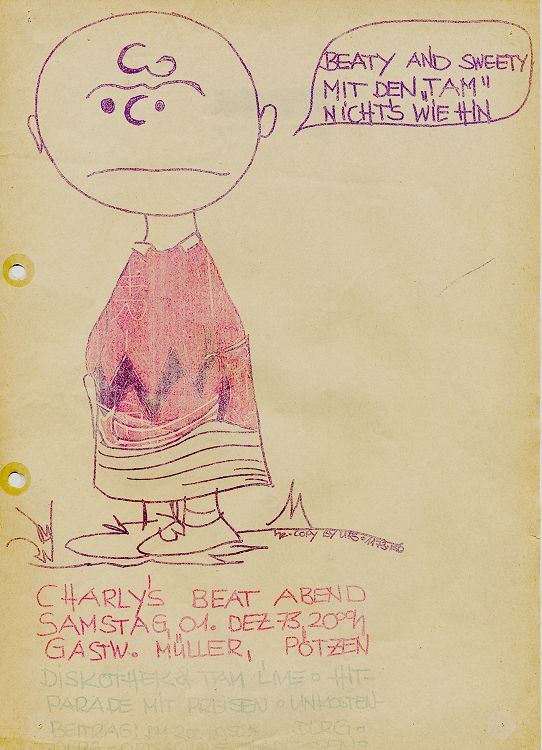 BEATY AND SWEETY
MIT DEN „TAM"
NICHT'S WIE HIN
CHARLY'S BEAT ABEND
SAMSTAG, 01. DEZ 73, 20 00 h
GASTW. MÜLLER, PÖTZEN
DISKOTHEK & TAM LIVE o HIT-
PARADE MIT PREISEN o UNKOSTEN-
BEITRAG: DM
DLRG